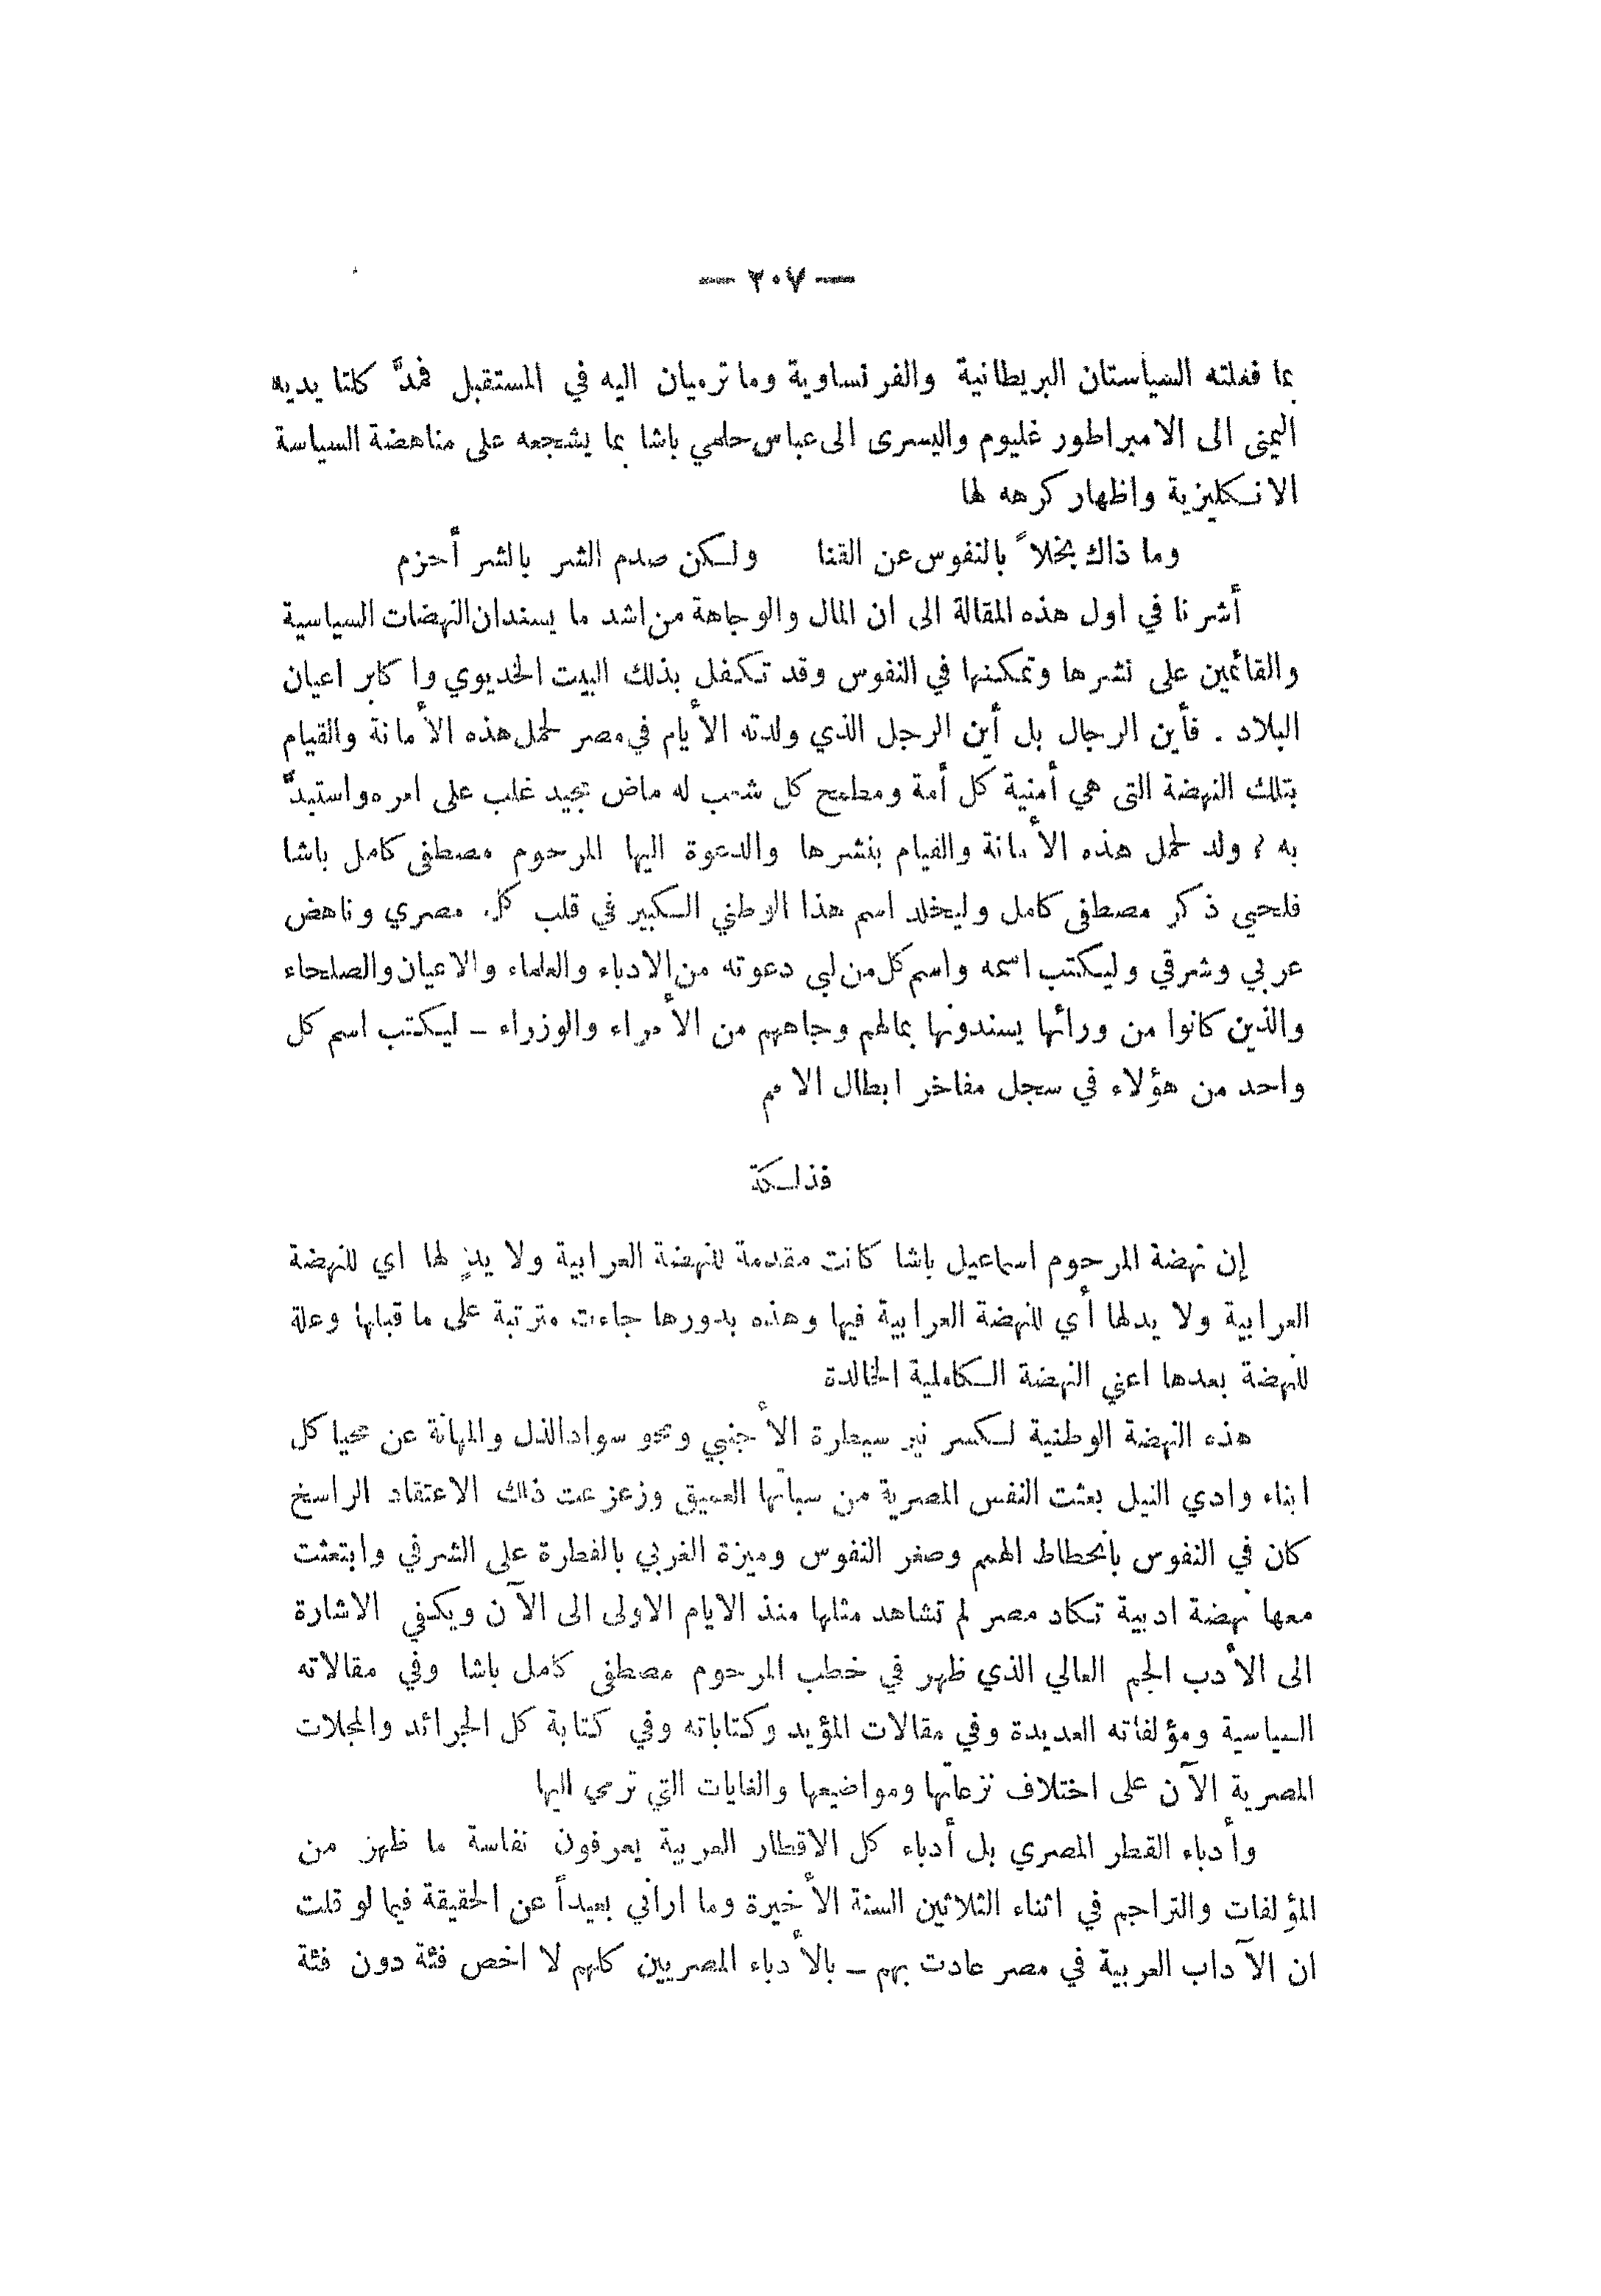 — ٢٠٧ —
بما فعلته السياستان البريطانية والفرنساوية وما ترميان اليه في المستقبل فمدَّ كلتا يديه
اليمنى الى الامبراطور غليوم واليسرى الى عباس حلمي باشا بما يشجعه على مناهضة السياسة
الانكليزية واظهار كرهه لها
وما ذاك بخلاً بالنفوس عن القنا ولكن صدم الشر بالشر أحزم
أشرنا في اول هذه المقالة الى ان المال والوجاهة من اشد ما يسندان النهضات السياسية
والقائمين على نشرها وتمكينها في النفوس وقد تكفل بذلك البيت الخديوي واكابر اعيان
البلاد . فأين الرجال بل أين الرجل الذي ولدته الأيام في مصر لحمل هذه الأمانة والقيام
بتلك النهضة التى هي أمنية كل أمة ومطمح كل شعب له ماض مجيد غلب على امره واستبدَّ
به ؟ ولد لحمل هذه الأمانة والقيام بنشرها والدعوة اليها المرحوم مصطفى كامل باشا
فلحيي ذكر مصطفى كامل وليخلد اسم هذا الوطني الكبير في قلب كل مصري وناهض
عربي وشرقي وليكتب اسمه واسم كل من لبى دعوته من الادباء والعلماء والاعيان والصلحاء
والذين كانوا من ورائها يسندونها بمالهم وجاههم من الأمراء والوزراء – ليكتب اسم كل
واحد من هؤلاء في سجل مفاخر ابطال الامم
فذلكة
إن نهضة المرحوم اسماعيل باشا كانت مقدمة للنهضة العرابية ولا يدٍ لها اي للنهضة
العرابية ولا يد لها أي للنهضة العرابية فيها وهذه بدورها جاءت مترتبة على ما قبلها وعلة
للنهضة بعدها اعني النهضة الكاملية الخالدة
هذه النهضة الوطنية لكسر نير سيطرة الأجنبي ومحو سواد الذل والمهانة عن محيا كل
ابناء وادي النيل بعثت النفس المصرية من سباتها العميق وزعزعت ذلك الاعتقاد الراسخ
كان في النفوس بانحطاط الهمم وصغر النفوس وميزة الغربي بالفطرة على الشرقي وابتعثت
معها نهضة ادبية تكاد مصر لم تشاهد مثلها منذ الايام الاولى الى الآن ويكفي الاشارة
الى الأدب الجم العالي الذي ظهر في خطب المرحوم مصطفى كامل باشا وفي مقالاته
السياسية ومؤلفاته العديدة وفي مقالات المؤيد وكتاباته وفي كتابة كل الجرائد والمجلات
المصرية الآن على اختلاف نزعاتها ومواضيعها والغايات التي ترمي اليها
وأدباء القطر المصري بل أدباء كل الاقطار العربية يعرفون نفاسة ما ظهر من
المؤلفات والتراجم في اثناء الثلاثين السنة الأخيرة وما اراني بعيداً عن الحقيقة فيما لو قلت
ان الآداب العربية في مصر عادت بهم – بالأدباء المصريين كلهم لا اخص فئة دون فئة